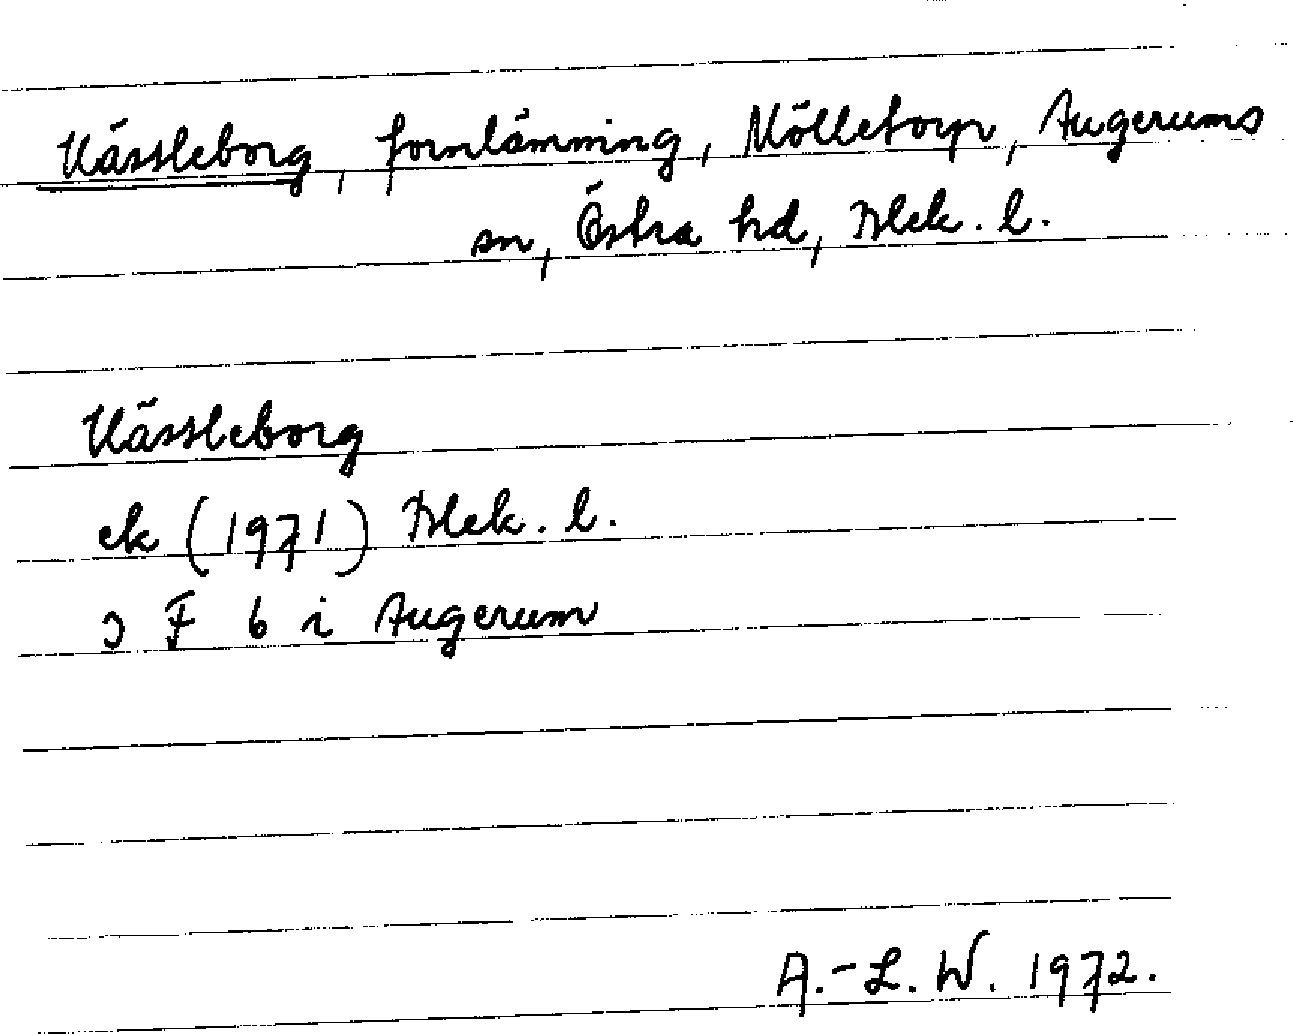 Vässleborg, fornlämning, Mölletorp, Augerums
sn, Östra hd, Blek. l.
Vässleborg
ek (1971) Blek. l.
ɔ F 6 i Augerum
A.-L. W. 1972.